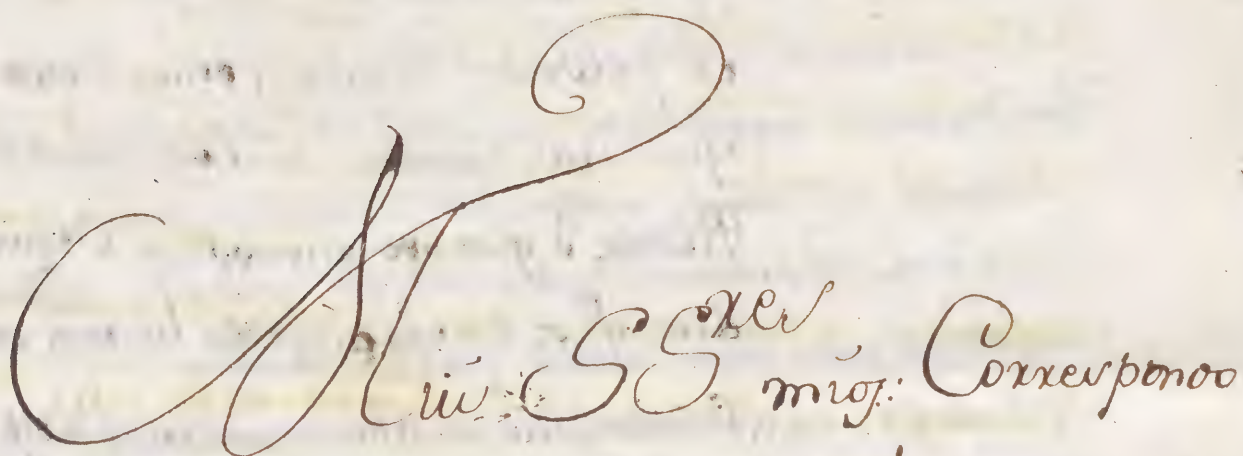 Mui SS.res mios: Correspondo